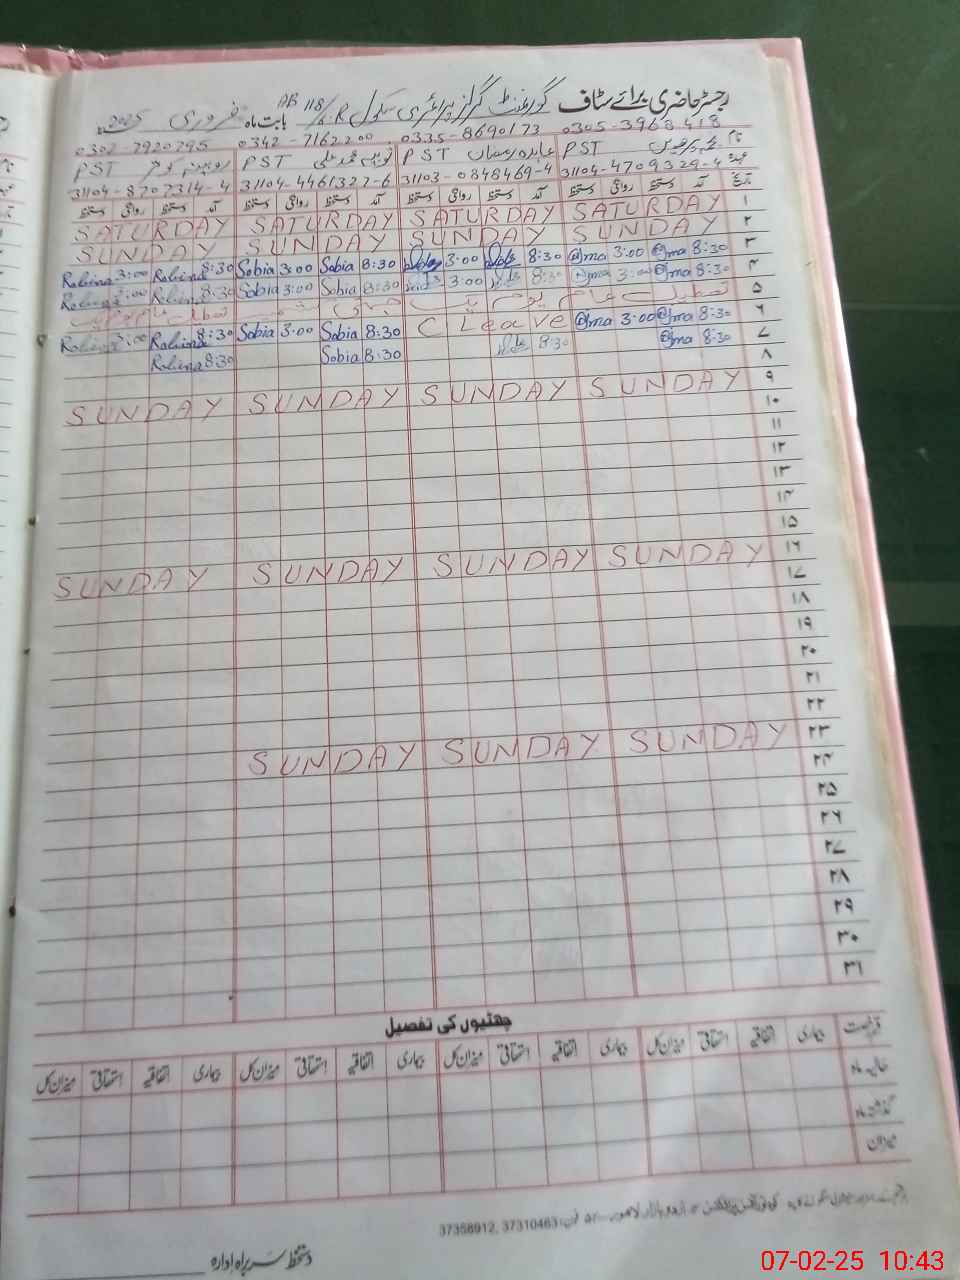 رجسٹر حاضری برائے سٹاف گورنمنٹ گرلز پرائمری سکول 118/6.R AB بابت ماہ فروری 2025
0305-3968418 0335-8690173 0342-7162200 0302-7920795
نام PST عابدہ رمضان PST ثوبیہ محمد علی PST روبینہ کوثر PST
عہدہ 31104-4709329-4 31103-0848469-4 31104-4461327-6 31104-8707314-4
تاریخ آمد دستخط روانگی دستخط آمد دستخط روانگی دستخط آمد دستخط روانگی دستخط آمد دستخط روانگی دستخط
۱ SATURDAY SATURDAY SATURDAY SATURDAY
۲ SUNDAY SUNDAY SUNDAY SUNDAY
۳ 8:30 @jma 3:00 @jma 8:30 3:00 8:30 Sobia 3:00 Sobia 8:30 Robina 3:00 Robina
۴ 8:30 @jma 3:00 @jma 8:30 3:00 8:30 Sobia 3:00 Sobia 8:30 Robina 3:00 Robina
۵ تعطیل عام یوم
۶ 8:30 @jma 3:00 @jma C Leave 8:30 Sobia 3:00 Sobia 8:30 Robina 3:00 Robina
۷ 8:30 @jma 8:30 8:30 Sobia 8:30 Robina
۸
۹ SUNDAY SUNDAY SUNDAY SUNDAY
۱۰
۱۱
۱۲
۱۳
۱۴
۱۵
۱۶ SUNDAY SUNDAY SUNDAY SUNDAY
۱۷
۱۸
۱۹
۲۰
۲۱
۲۲
۲۳ SUNDAY SUNDAY SUNDAY
۲۴
۲۵
۲۶
۲۷
۲۸
۲۹
۳۰
۳۱
چھٹیوں کی تفصیل
قسم رخصت بیماری اتفاقیہ استحقاقی میزان کل بیماری اتفاقیہ استحقاقی میزان کل بیماری اتفاقیہ استحقاقی میزان کل بیماری اتفاقیہ استحقاقی میزان کل
حالیہ ماہ
گذشتہ ماہ
میزان
اردو بازار لاہور فون: 37310463, 37358912
دستخط سربراہ ادارہ
07-02-25 10:43